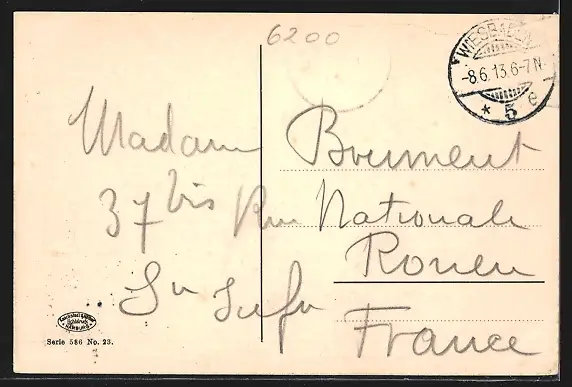 6200
WIESBADEN
-8.6.13.6-7N.
* 5 e
Madame Boument
37 bis Rue Nationale
Rouen
France
HAMBURG
Serie 586 No. 23.